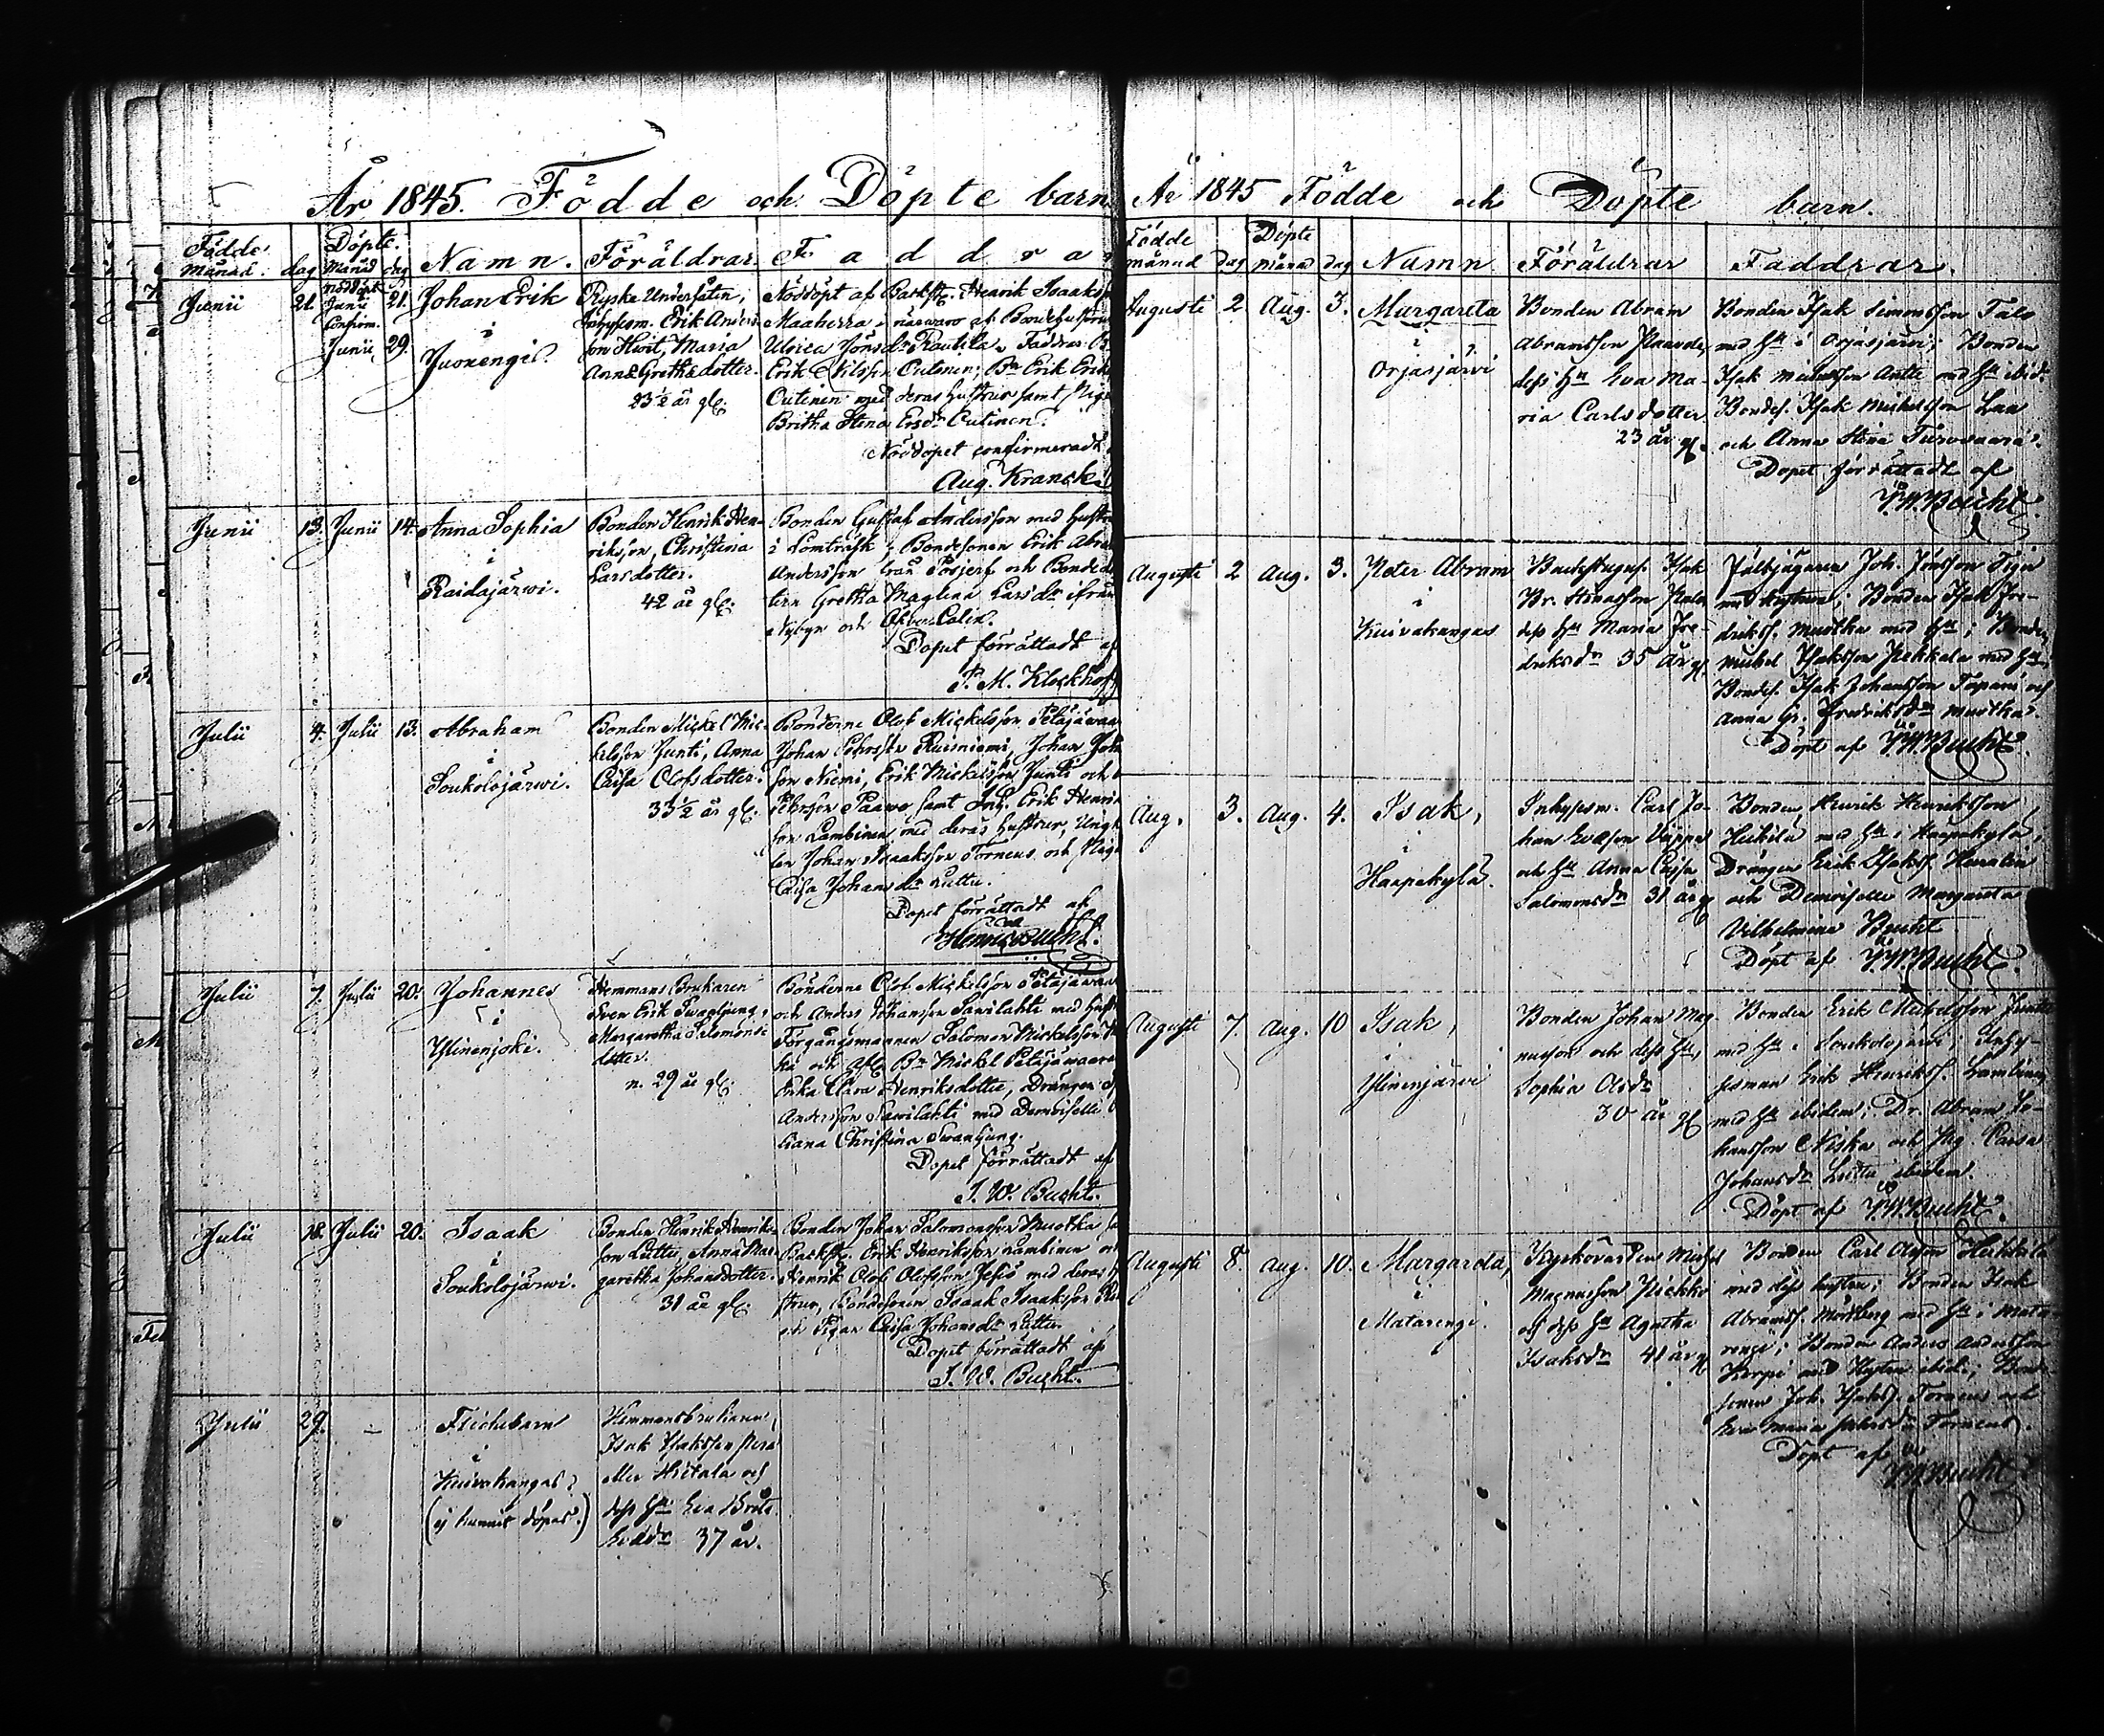 År 1845. Födde och Döpte barn
Födde månad. dag Döpte. Månad dag Namn. Föräldrar. Faddrar
Junii 21. Nöddöpt Junii 21. Confirm. Junii 29.
Johan Erik
i
Juoxengi.
Ryske Undersåten,
Inhysesm. Erik Anders
son Hwit, Maria
Anna Grethasdotter.
23½ år gl.
Nöddöpt af Backst. Henrik Isaaks
Maaherra i närwaro af Bondehustrun
Ulrica Jönsdr Rautila. Faddrar
Erik Nilsson Outinen; Bn Erik Eriks
Outinen med deras hustrur samt Pig
Britha Stina Ersdr Outinen.
Nöddopet confirmeradt
Aug. Kranck.
Junii 13. Junii 14.
Anna Sophia
i
Raidajärwi.
Bonden Henrik Hen-
riksson, Christina
Larsdotter.
42 år gl.
Bonden Gustaf Andersson med hustru
i Lomträsk; Bondesonen Erik Abra
Andersson från Posjerf och Bondedot
tern Gretha Maglena Larsdr ifrån
Nybyn och Öfwer Calix.
Dopet förrättadt af
P. M. Klockhoff
Julii 4. Julii 13.
Abraham
i
Soukolojärwi.
Bonden Mickel Mic-
kelsson Junti, Anna
Caisa Olofsdotter.
33½ år gl.
Bönderne Olof Mickelsson Petäjäwaa
Johan Pehrsson Ruisniemi, Johan Joh
son Niemi, Erik Mickelsson Junti och
Pehrsson Paawo samt Inh. Erik Henrik
son Lambinen med deras hustrur, Ungk
len Johan Isaaksson Torneus och Pig
Caisa Johansdr Luttu.
Dopet förrättadt af
Henric Bucht.
Julii 7. Julii 20.
Johannes
i
Ylinenjoki.
Hemmans Brukaren
Sven Erik Swanljung,
Margaretha Salomons
dotter.
n. 29 år gl.
Bönderne Olof Mickelsson Petäjäwaara
och Anders Johansson Sawilahti med hust
Förgångsmannen Salomon Mickelsson
ka och afl. Bn Mickel Petäjäwaaras
Enka Clara Henriksdotter, Drängen
Andersson Sawilahti med Demoiselle
liana Christina Swanljung.
Dopet förrättadt af
J. W. Bucht.
Julii 18. Julii 20.
Isaak
i
Soukolojärwi.
Bonden Henrik Henriks-
son Luttu, Anna Mar-
garetha Johansdotter.
31 år gl.
Bonden Johan Salomonsson Muotka
Backst. Erik Henriksson Lambinen och
Henrik Olof Olofsson Jesiö med deras
strur, Bondesonen Isaak Isaaksson
och Pigan Caisa Johansdr Luttu.
Dopet förrättadt af
J. W. Bucht.
Julii 29. –
Flickebarn
i
Kuivakangas
(ej hunnit döpas.)
Hemmansbrukaren,
Isak Isaksson Pera
eller Hietala och
dess Hu Eva Brita
Ersdr 37 år.
År 1845 Födde och Döpte barn.
Födde månad dag Döpte månad dag Namn Föräldrar Faddrar.
Augusti 2 Aug. 3.
Margareta
i
Orjasjärvi
Bonden Abram
Abramsson
dess Hu Eva Ma-
ria Carlsdotter
23 år gl.
Bonden Isak Simonsson Talo
med Hu i Orjasjärvi; Bonden
Isak Michelsson Antti med Hu ibid.
Bondes. Isak Michelsson
och Anna Stina
Dopet förrättadt af
J. W. Bucht.
Augusti 2 Aug. 3.
Peter Abram
i
Kuivakangas
Isak
dess Hu Maria Fre-
driksdr 35 år gl.
Joh. Jönsson
med hustru; Bonden Isak Fre-
drikss. Muotka med Hu; Bonden
Michel Isaksson Pekkala med Hu
Bondes. Isak Johansson Tapani och
Anna Gr. Fredriksdr Muotka.
Döpt af J. W. Bucht.
Aug. 3. Aug. 4.
Isak,
i
Haapakylä.
Inhysesm. Carl Jo-
han Ersson
och Hu Anna Cajsa
Salomonsdr 31 år gl
Bonden Henrik Henriksson
Heikilä med Hu i Haapakylä,
Drängen Erik Isakss.
och Demoiselle Margareta
Vilhelmina Bucht
Döpt af J. W. Bucht.
Augusti 7. Aug. 10
Isak,
i
Ylinenjärvi
Bonden Johan Mag
nusson och dess Hu,
Sophia Olsdr
30 år gl
Bonden Erik Michelsson Juntti
med Hu i Soukolojärvi; Inhy-
sesman Erik Henrikss. Lambinen
med Hu ibidem; Dr. Abram Jo-
hansson Niska och Pig. Caisa
Johansdr Luttu ibidem.
Döpt af J. W. Bucht.
Augusti 8. Aug. 10.
Margareta,
i
Matarengi.
Kyrkovärden Michel
Magnusson
och dess Hu Agatha
Isaksdr 41 år gl
Bonden Carl Olsson Heikkilä
med dess hustru; Bonden Isak
Abramss. med Hu i Mata-
rengi; Bonden Anders Andersson
Korpi med Hustru ibid.; Bonde-
sonen Joh. Isakss. Torneus och
Eva Maria Torneus.
Döpt af
J. W. Bucht